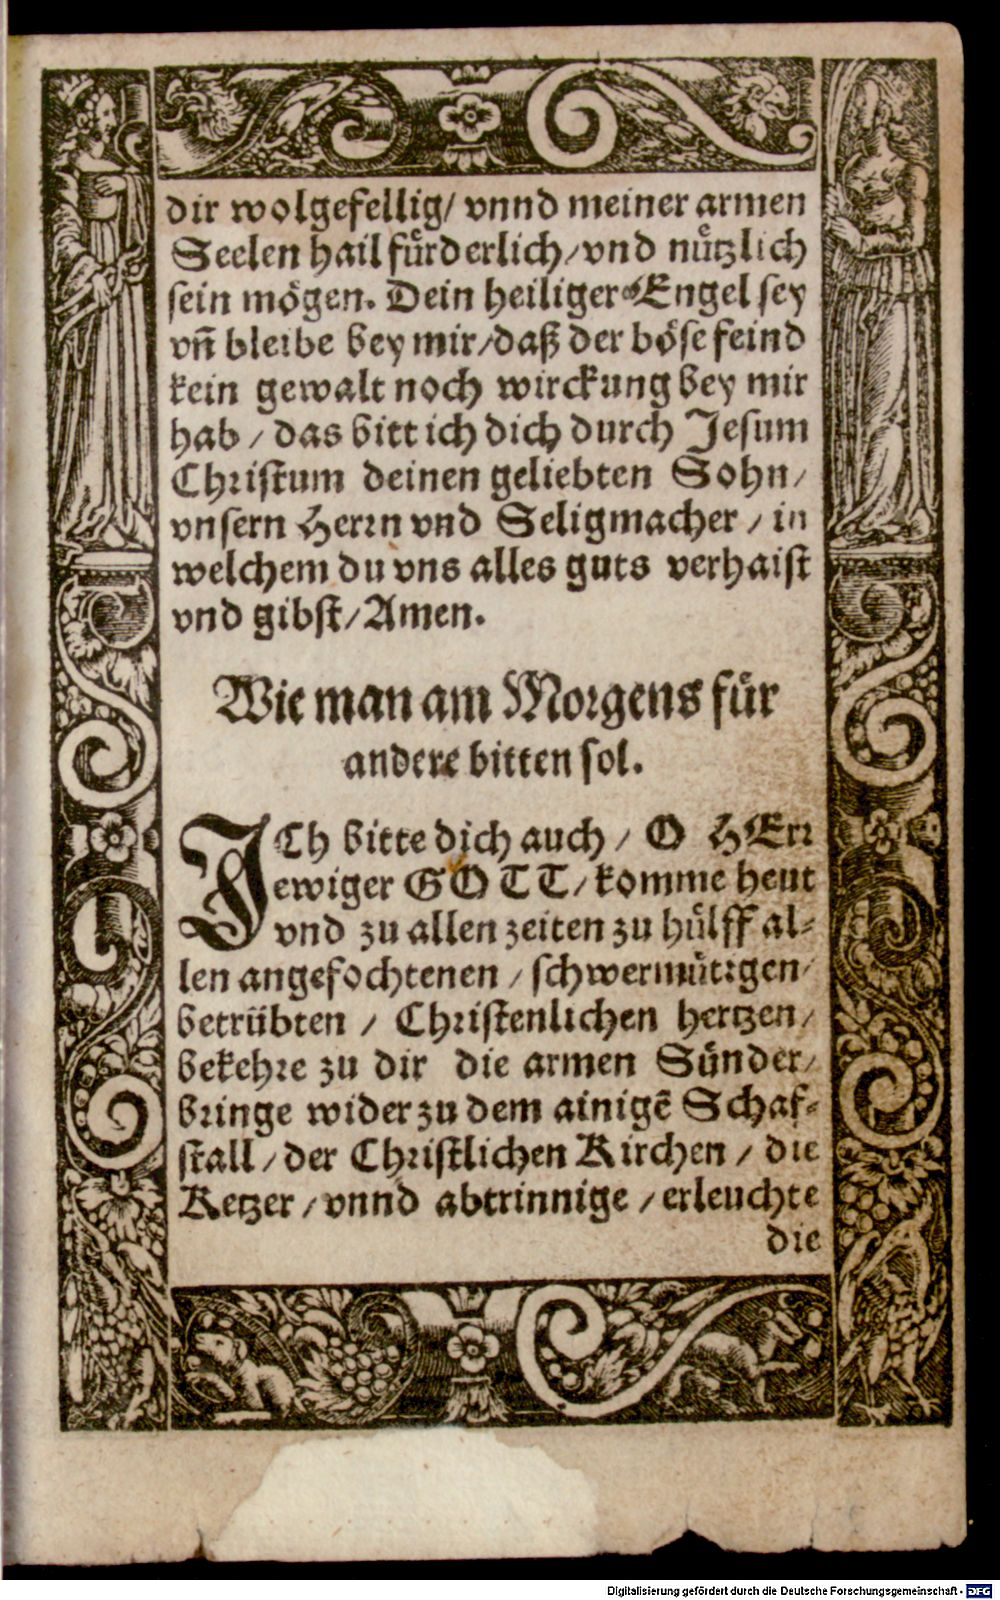 dir wolgefellig/ vnnd meiner armen
Seelen hail fürderlich/ vnd nützlich
sein mögen. Dein heiliger Engel sey
vñ bleibe bey mir/ daß der böse feind
kein gewalt noch wirckung bey mir
hab / das bitt ich dich durch Jesum
Christum deinen geliebten Sohn/
vnsern Herrn vnd Seligmacher / in
welchem du vns alles guts verhaist
vnd gibst/ Amen.
Wie man am Morgens für
andere bitten sol.
JCh bitte dich auch / O HErr
ewiger GOTT/ komme heut
vnd zu allen zeiten zu hülff al-
len angefochtenen / schwermütigen/
betrübten / Christenlichen hertzen/
bekehre zu dir die armen Sünder/
bringe wider zu dem ainigē Schaf-
stall / der Christlichen Kirchen / die
Ketzer / vnnd abtrinnige / erleuchte
die
Digitalisierung gefördert durch die Deutsche Forschungsgemeinschaft - DFG